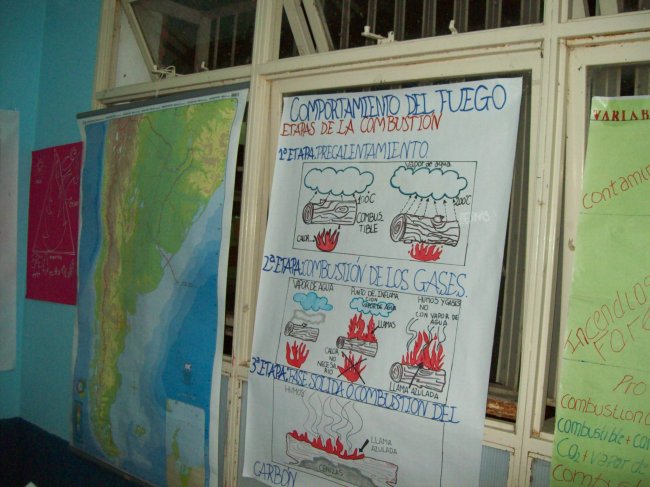 COMPORTAMIENTO DEL FUEGO
ETAPAS DE LA COMBUSTION
1ª ETAPA: PRECALENTAMIENTO.
VAPOR DE AGUA
100ºC
200ºC
COMBUS
TIBLE
CALOR
2ª ETAPA: COMBUSTIÓN DE LOS GASES.
VAPOR DE AGUA
PUNTO DE INFLAMA
CION
VAPOR DE AGUA
LLAMAS
HUMOS Y GASES
NO
CON VAPOR DE
AGUA
CALOR
NO
NECESA
RIO
LLAMA AZULADA
3ª ETAPA: FASE SOLIDA O COMBUSTION DEL
CARBÓN
HUMOS
LLAMA
AZULADA
CENIZAS
VARIAB
contamin
Incendios
Fore
Pro
combustion
combustible +
CO2 + vapor de
combusti